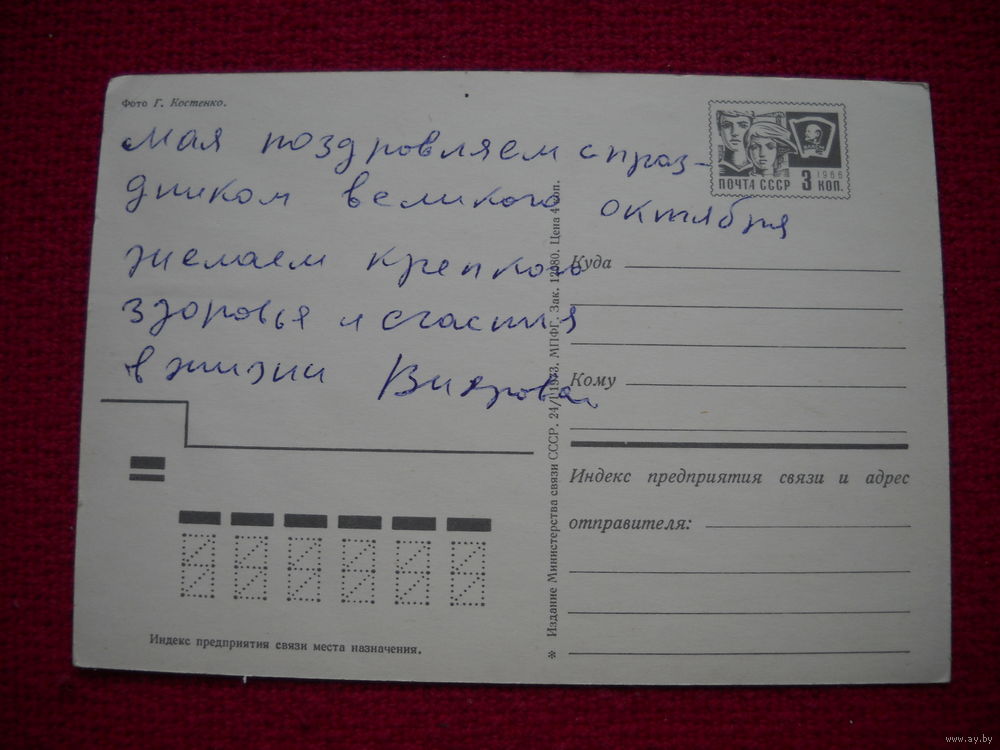 Фото Г. Костенко.
мая поздровляем с праз-
дником великого октября
желаем крепкого
здоровья и счастия
в жизни
ПОЧТА СССР 3 КОП.
1966
Куда
Кому
Индекс предприятия связи и адрес
отправителя:
※ Издание Министерства связи СССР. 24/I 1973. МПФГ. Зак. 12080. Цена 4 коп.
Индекс предприятия связи места назначения.
www.ay.by